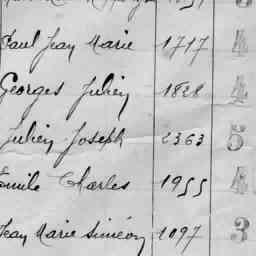 Paul Jean Marie 1717 4
Georges Julien 1828 4
Julien Joseph 2363 5
Emile Charles 1955 4
Jean Marie Siméon 1097 3